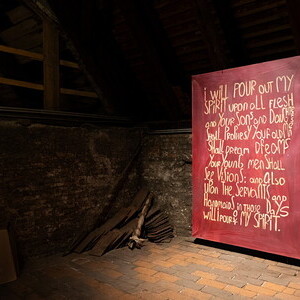 i WILL POUR OUT MY
SPiRiT UPON all FLESH
aND YOUR SONS aND DaUGHTERS
SHall PROPHESY YOUR OLD
SHall DREam DREamS
YOUR YOUNG mEN SHall
SEE VISIONS: aND alSO
UPON THE SERVaNTS aND
HaNDmaiDS iN THOSE DaYS
Will i POUR MY SPIRIT.